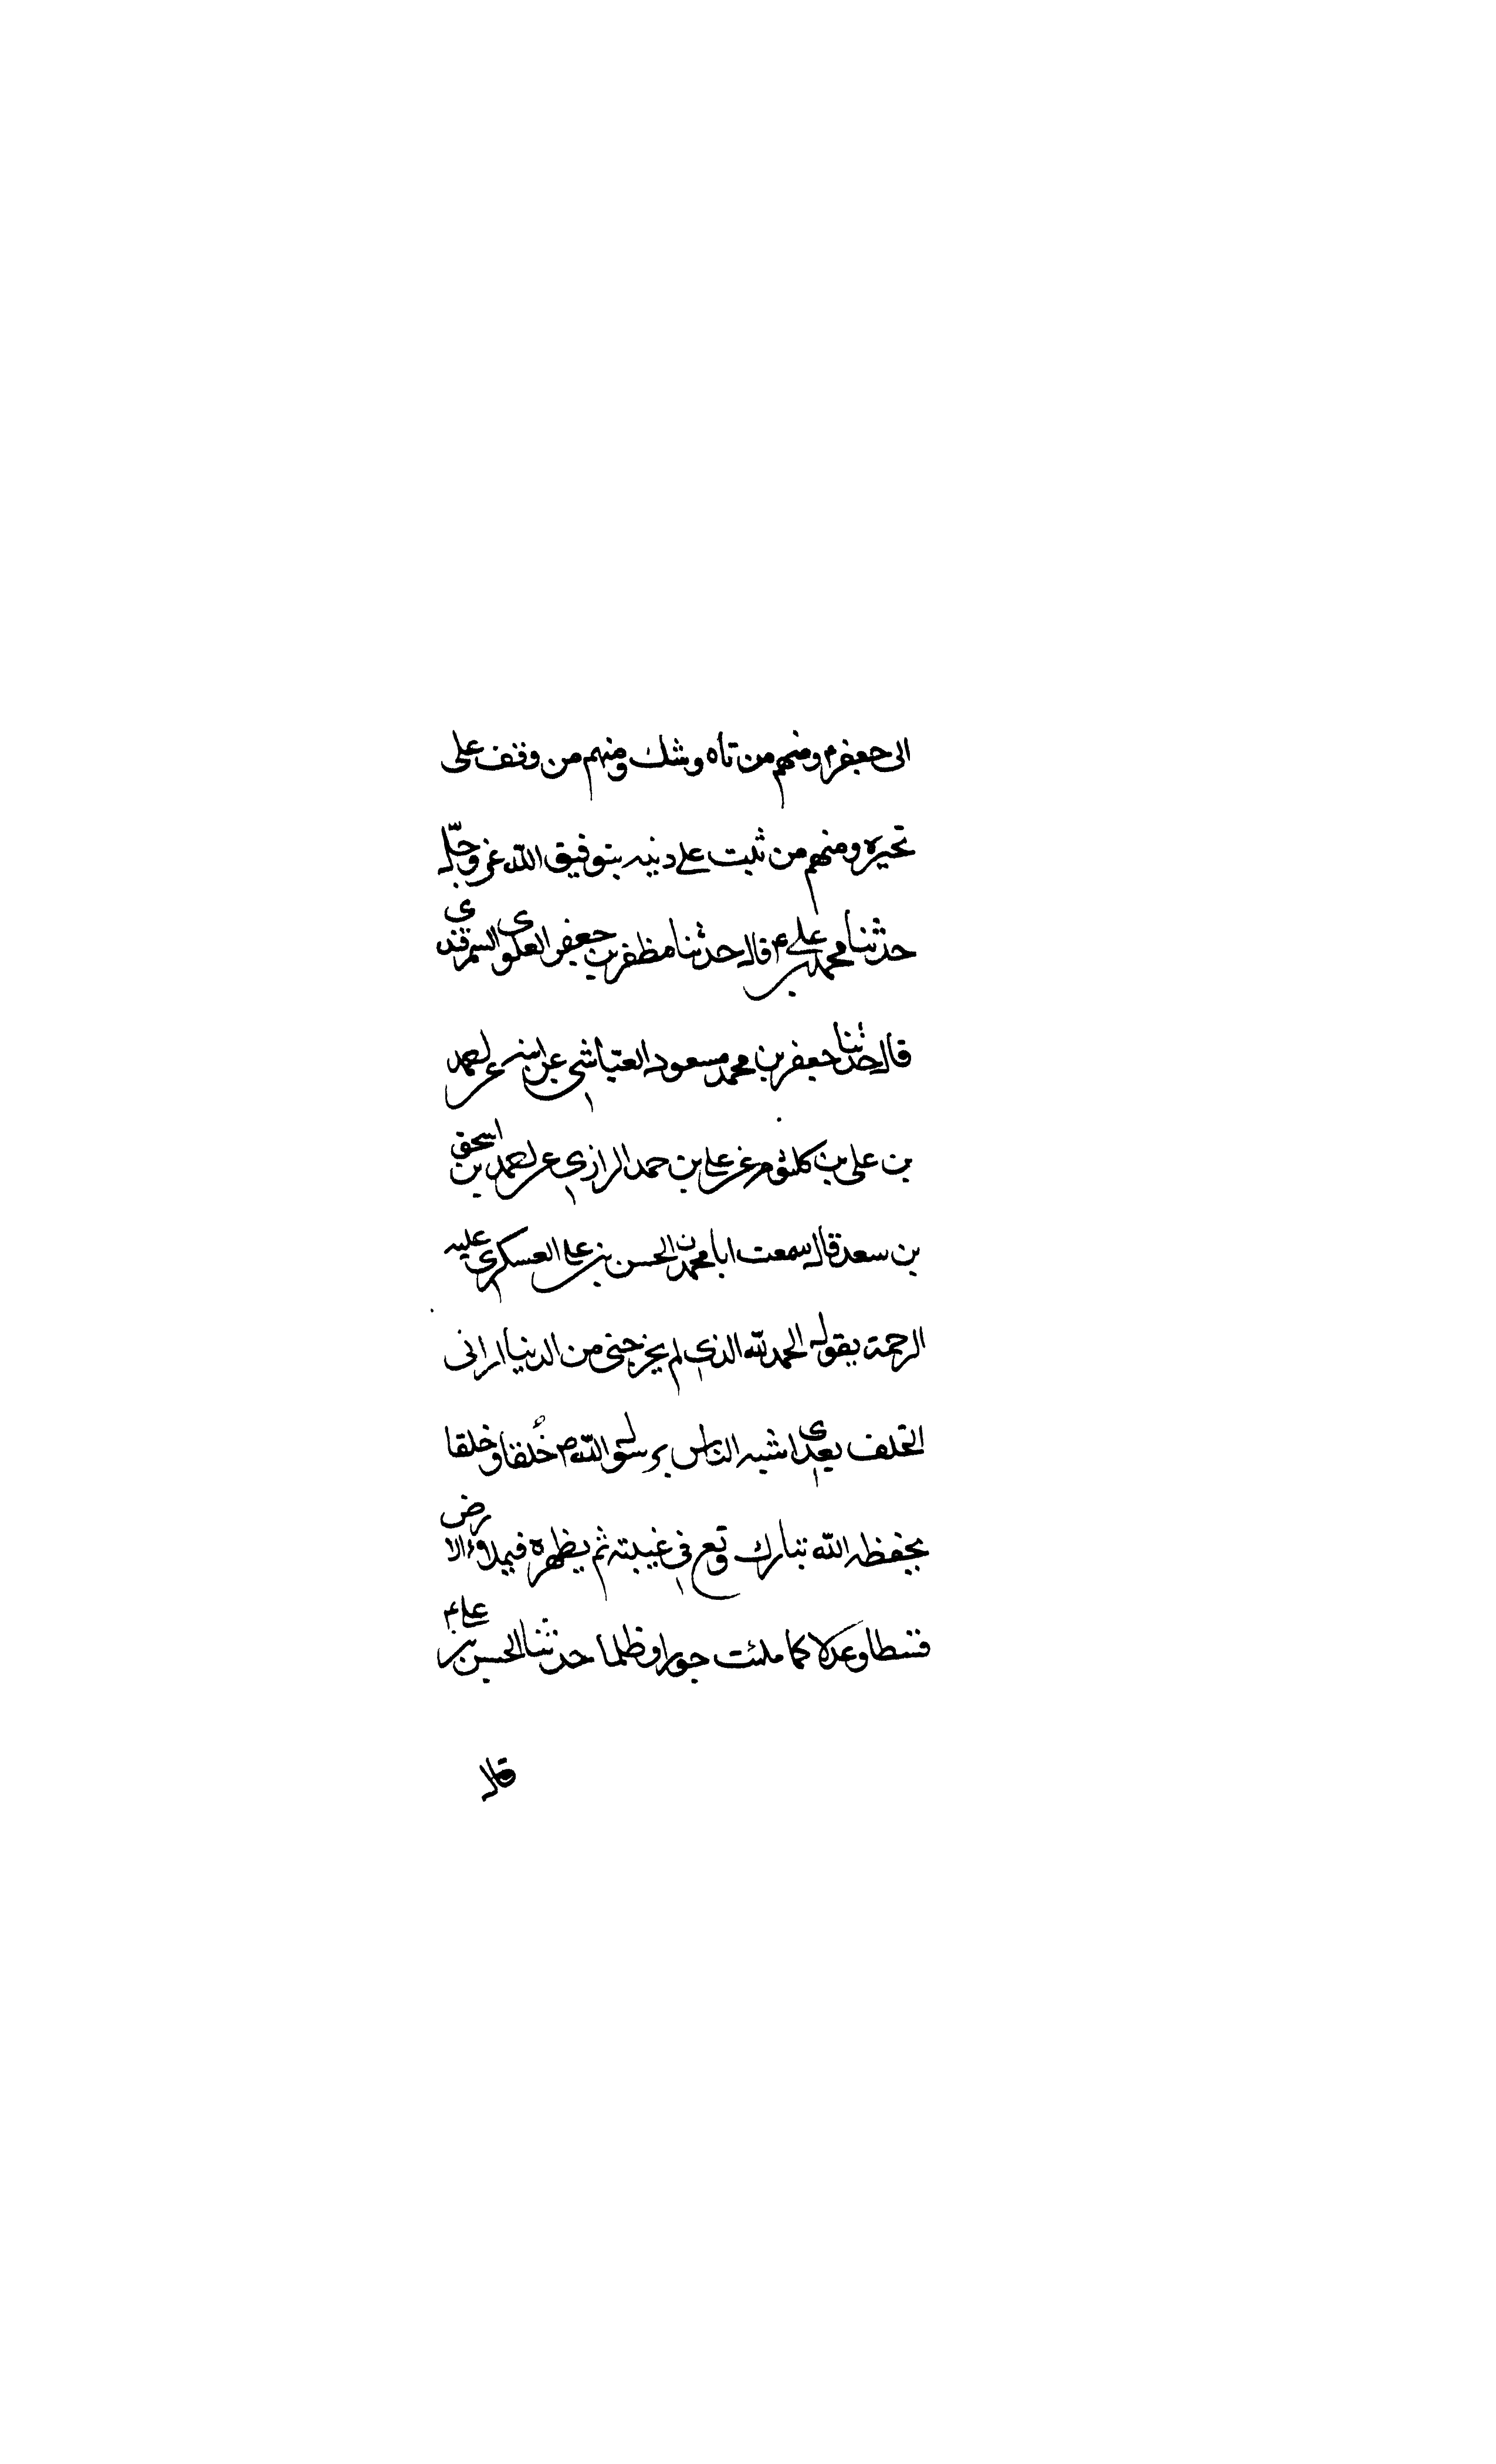 الى جعفر ومنهم من تاه وشك ومنهم من وقف على
تحيره ومنهم من ثبت على دينه بتوفيق الله عز وجل
حدثنا محمد بن علي قال حدثنا مظفر بن جعفر العلوى السمرقندى
قال حدثنا جعفر بن محمد مسعود العياشي عن ابيه عن احمد
بن على بن كلثوم عن على بن احمد الرازي عن احمد بن اسحق
بن سعد قال سمعت ابا محمدن الحسن بن على العسكري عليه
الرحمة يقول الحمد لله الذي لم يخرجنى من الدنيا ارانى
الخلف بعدى اشبه الناس برسول الله ص خُلقا وخلقا
يحفظه الله تبارك وتع في غيبته ثم يظهره فيملاء الارض
قسطا وعدلا كما ملئت جورا وظلما حدثنا الحسين بن على
قال